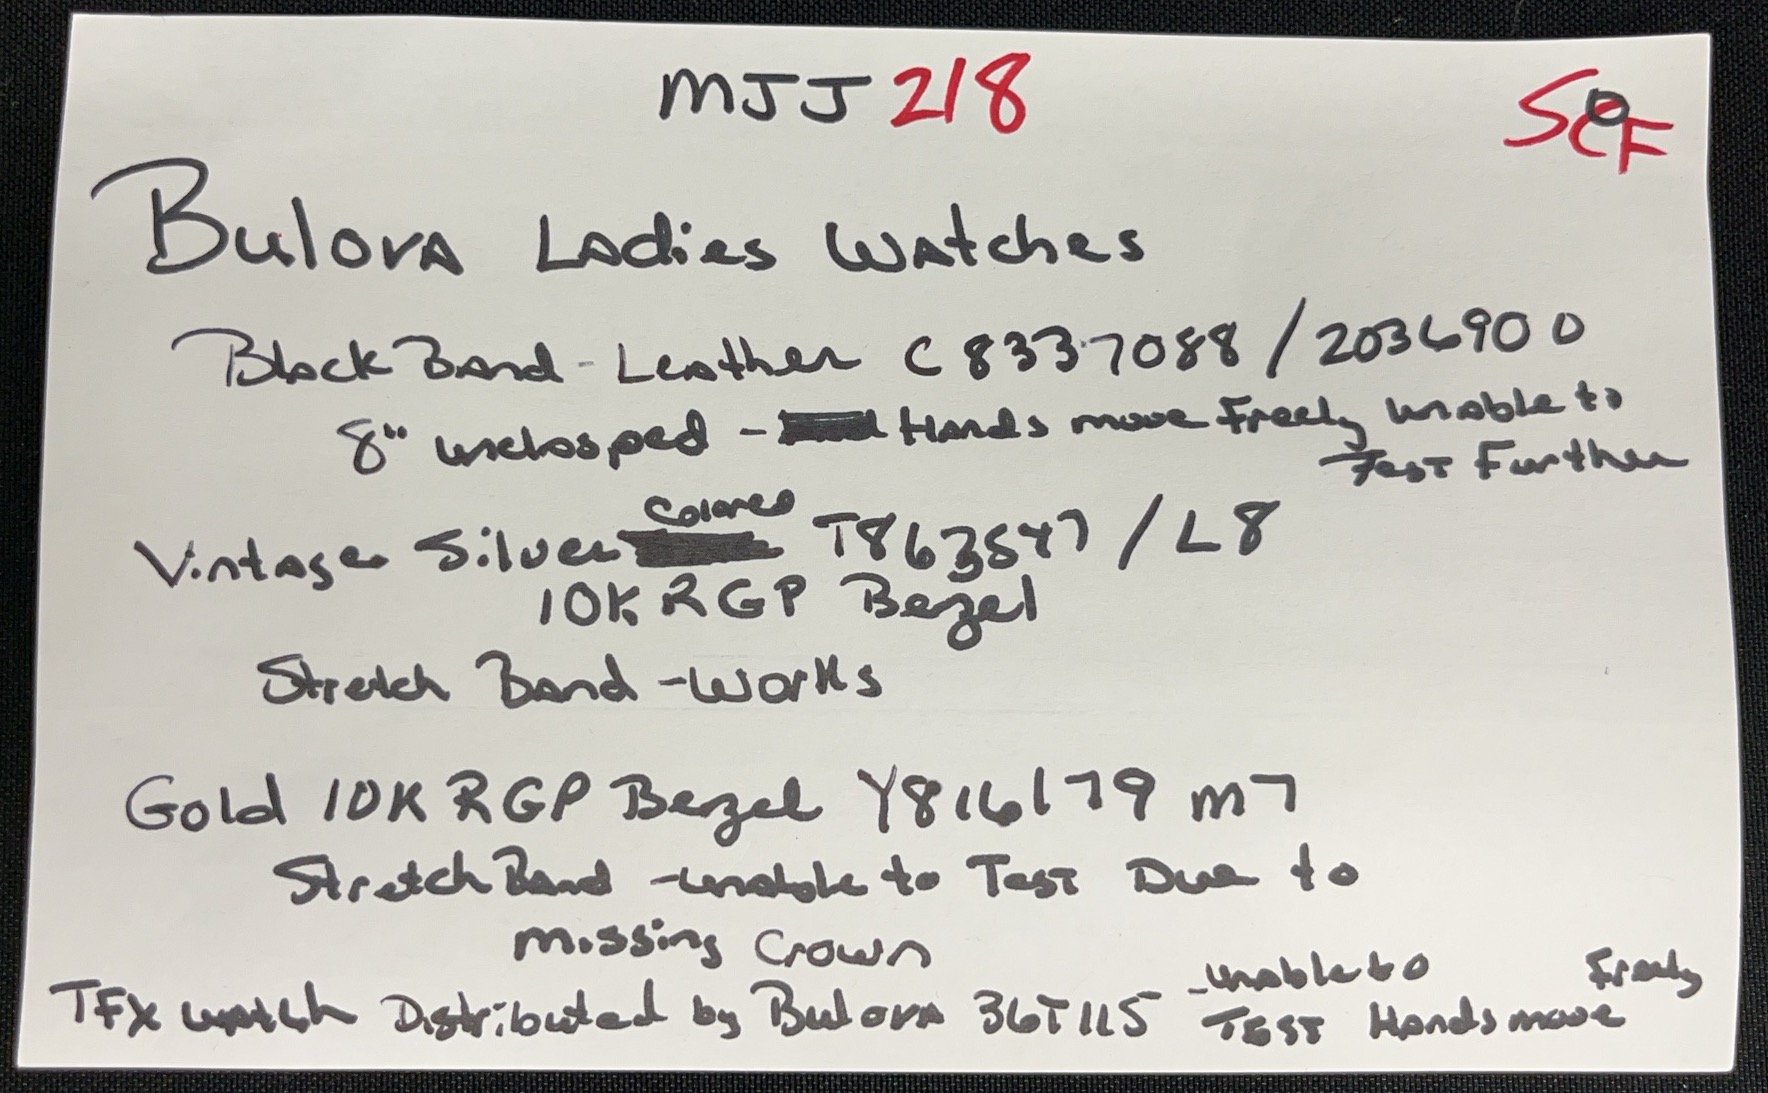 MJJ 218
Bulova Ladies Watches
Black Band - Leather C8337088 / 2036900
8" unclasped - Hands move Freely unable to
Test Further
Vintage Silver Colored T863547 / L8
10K RGP Bezel
Stretch Band - works
Gold 10K RGP Bezel Y816179 M7
Stretch Band - unable to Test Due to
missing Crown
TFX watch Distributed by Bulova 36T115 - unable to
TEST Hands move Freely